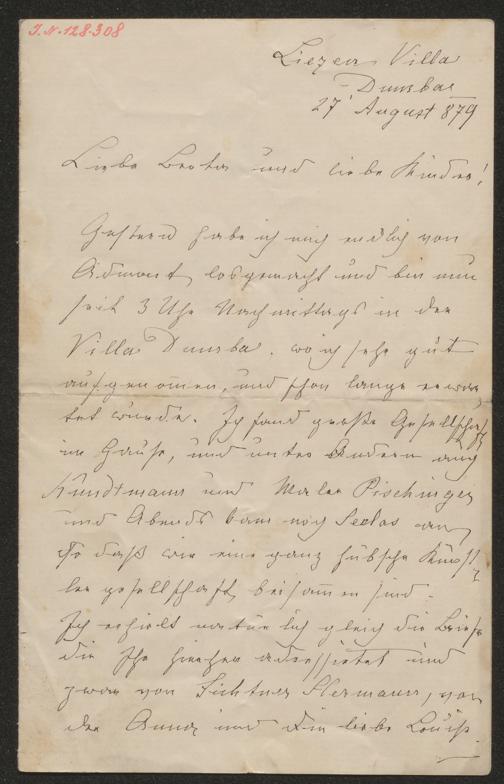 I.N. 128.308
Liezen Villa
Dumba
27 August 879
Liebe Berta und liebe Kinder!
Gestern habe ich mich endlich von
Admont losgemacht und bin nun
seit 3 Uhr Nachmittags in der
Villa Dumba. wo ich sehr gut
aufgenommen, und schon lange erwar-
tet wurde. Ich fand große Gesellschaft
im Hause, und unter Andern auch
Kundtmann und Maler Pischinger
und Abends kam noch Seelos an,
so daß wir eine ganz hübsche Künst-
ler gesellschaft beisammen sind.
Ich erhielt natürlich gleich die Briefe
die Ihr hieher adressirtet und
zwar von Hermann, von
der Anna und die liebe Louise